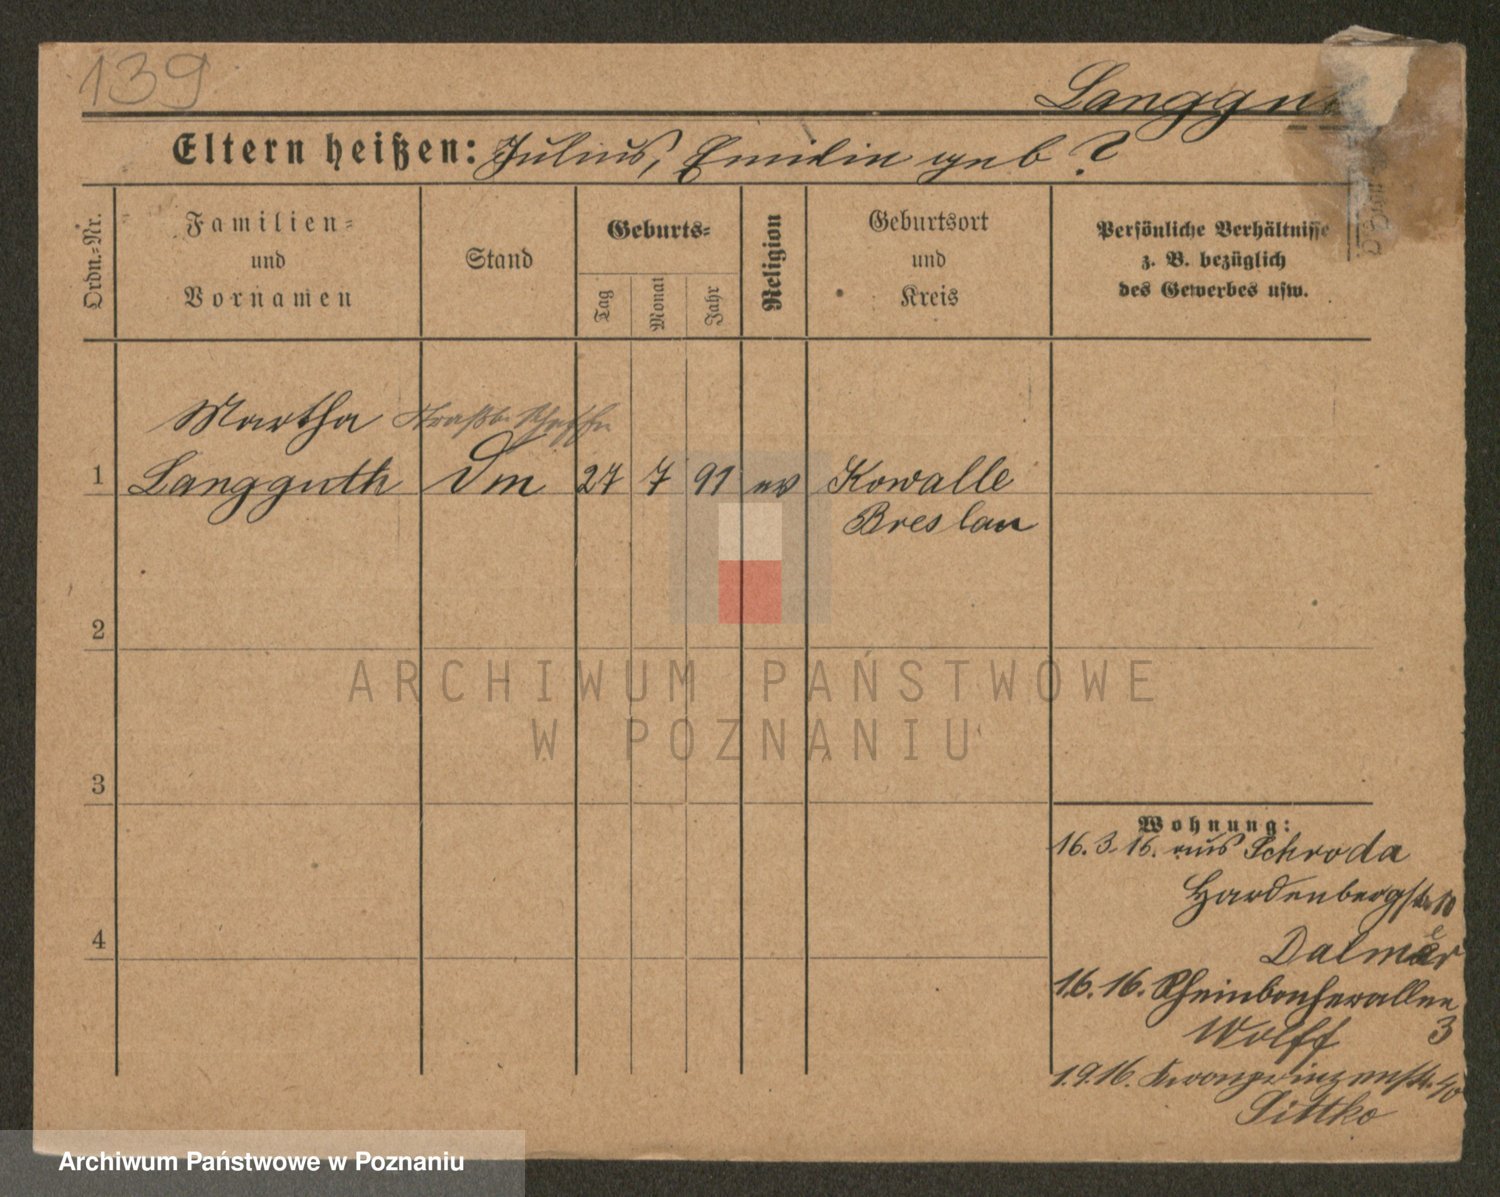 139
Langgu
Eltern heißen: Julius, Emilie geb ?
Ordn.-Nr.
Familien-
und
Vornamen
Stand
Geburts-
Tag
Monat
Jahr
Religion
Geburtsort
und
Kreis
Persönliche Verhältnisse
z. B. bezüglich
des Gewerbes usw.
Martha
1 Langguth 27 7 91 ev Kowalle
Breslau
2
3
4
Wohnung:
16.3.16. aus Schroda
Hardenbergstr 10
Dalmer
1.6.16.
3
Wolff
1.9.16. Kronprinzenstr.
Sittko
ARCHIWUM PAŃSTWOWE
W POZNANIU
Archiwum Państwowe w Poznaniu